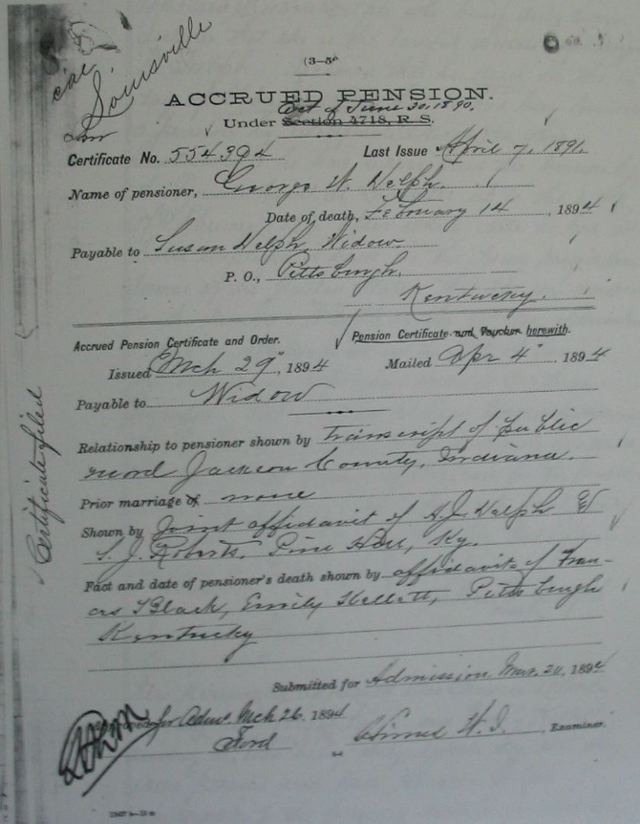 (3—5
Louisville
ACCRUED PENSION.
Act of June 30, 1890.
Under Section 4718, R. S.
Certificate No. 554394 Last Issue April 7, 1891.
Name of pensioner, George W. Nelph.
Date of death, February 14, 1894
Payable to Susan Nelph, Widow.
P. O., Pittsburgh,
Kentucky.
Accrued Pension Certificate and Order. Pension Certificate and Voucher herewith.
Issued Mch 29", 1894 Mailed Apr 4", 1894
Payable to Widow
Relationship to pensioner shown by transcript of public
record Jackson County, Indiana.
Prior marriage of none
Shown by Joint affidavit of A.J. Nelph &
S. J. Roberts, Pine Hill, Ky.
Fact and date of pensioner's death shown by affidavits of Fran-
Black, Emily Hellett, Pittsburgh
Kentucky
Submitted for Admission Mar. 20, 1894
for Adm. Mch 26, 1894
Ford W. I. Examiner.
Certificate filed